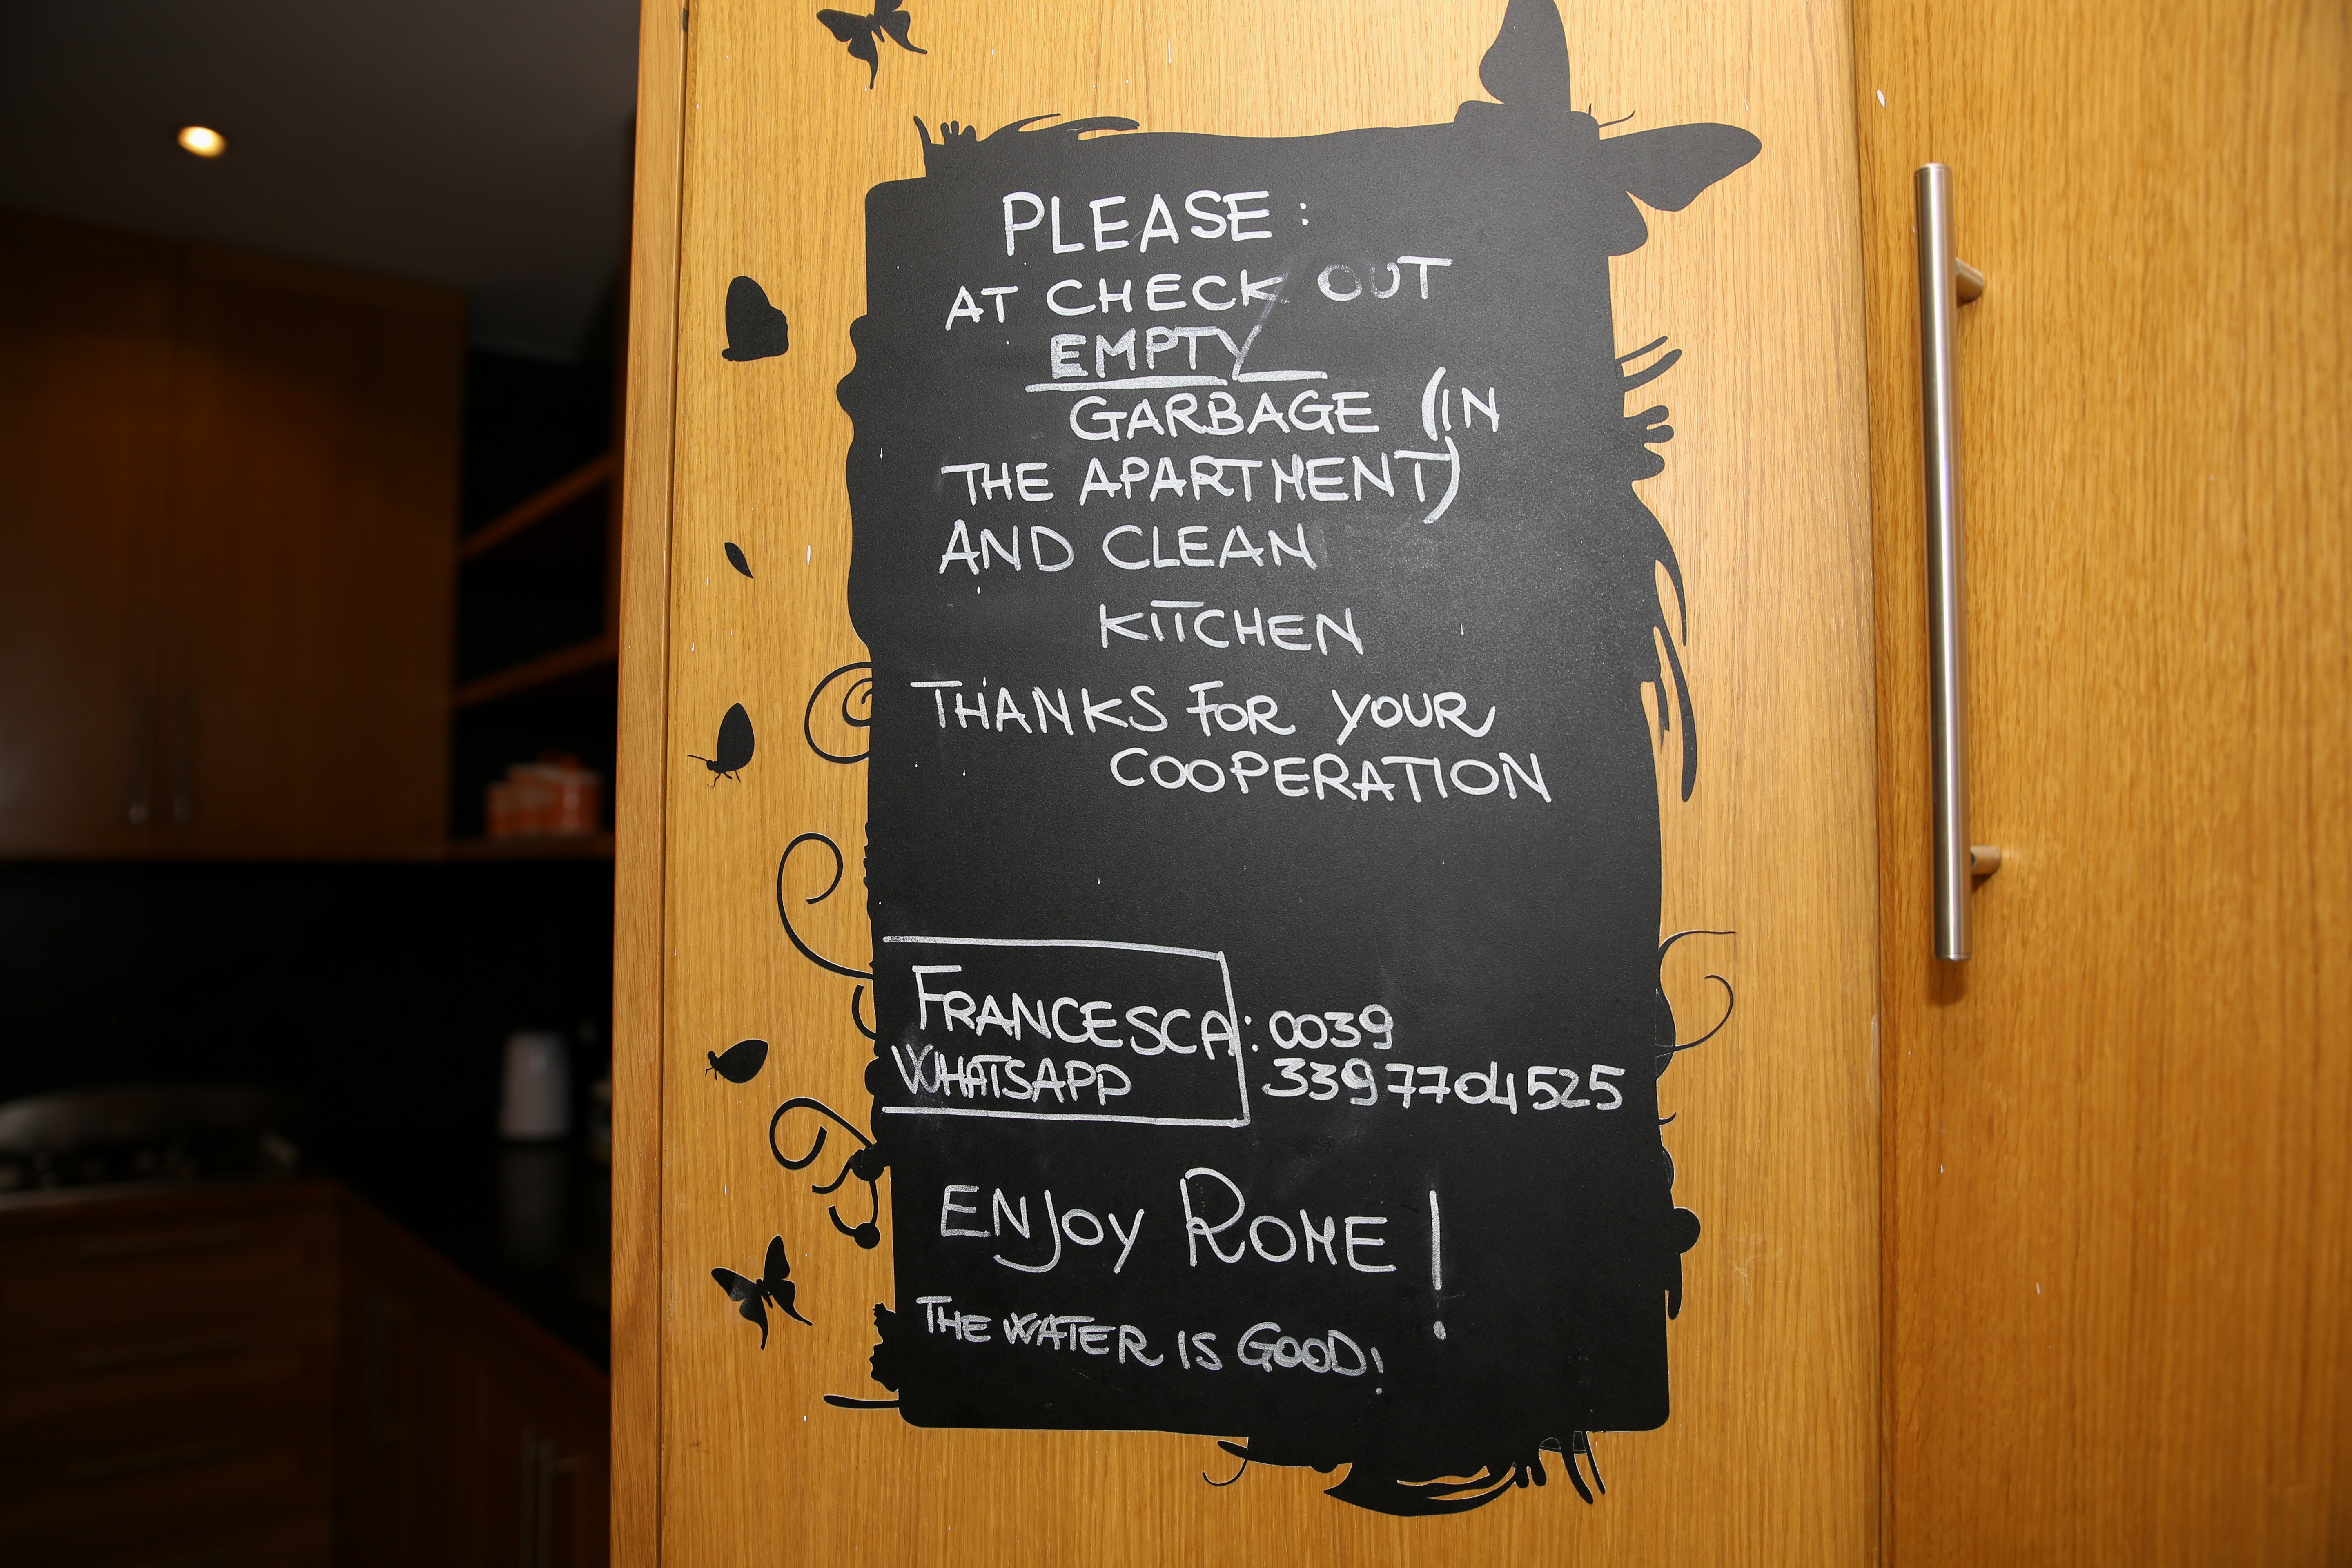 PLEASE:
AT CHECK OUT
EMPTY
GARBAGE (IN
THE APARTMENT)
AND CLEAN
KITCHEN
THANKS FOR YOUR
COOPERATION
FRANCESCA: 0039
WHATSAPP 3397704525
ENJOY ROME!
THE WATER IS GOOD!